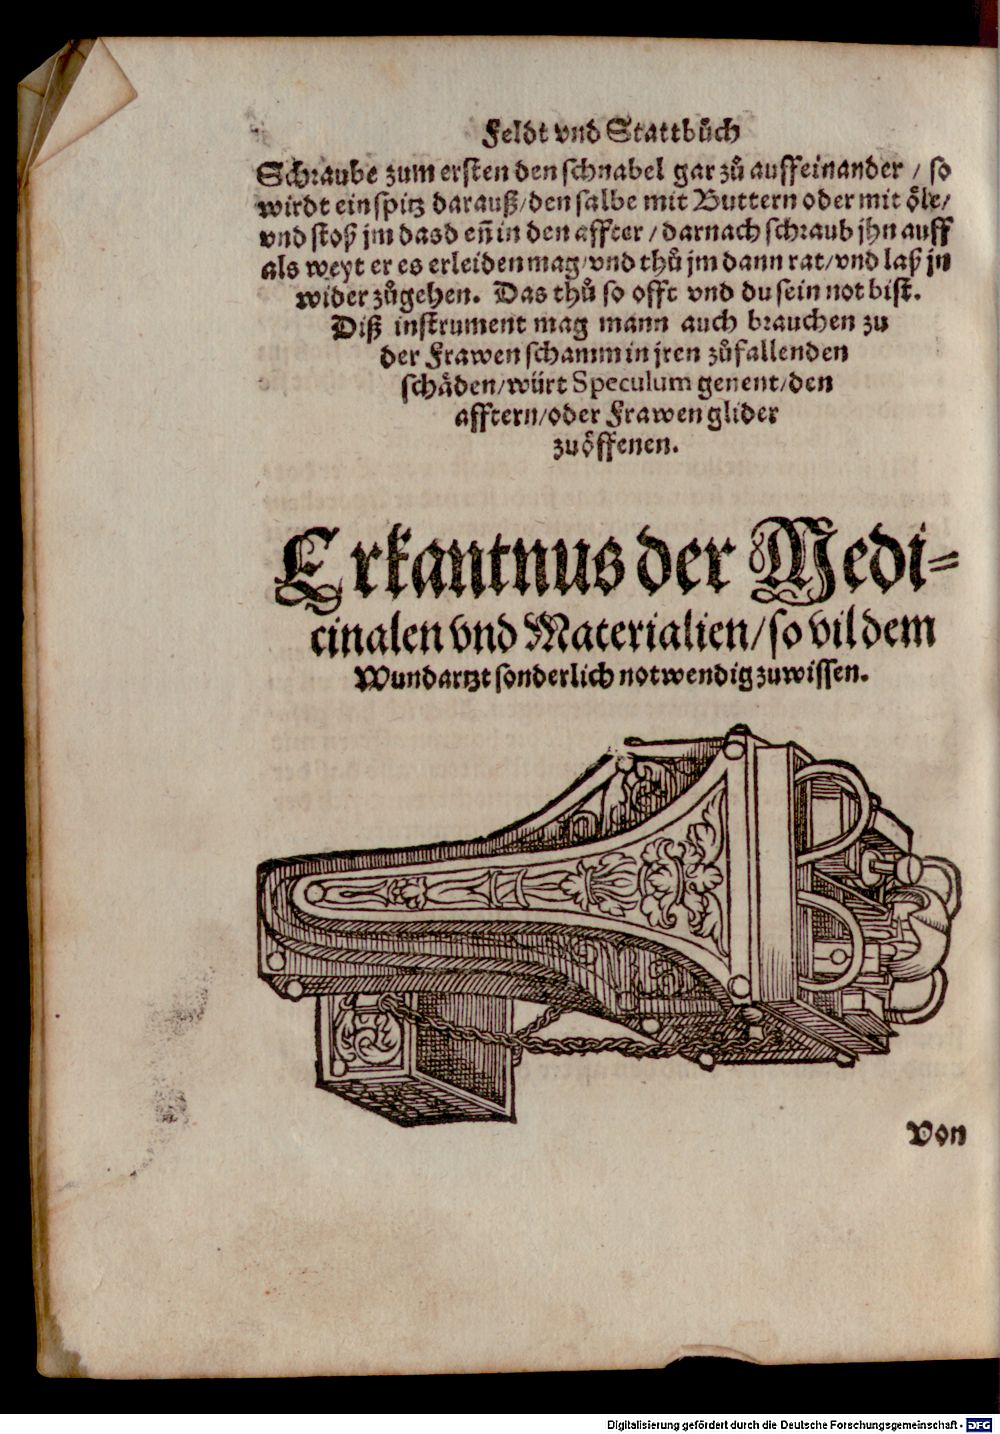 Feldt vnd Stattbuͤch
Schraube zum ersten den schnabel gar zuͤ auffeinander / so
wirdt ein spitz darauß/den salbe mit Buttern oder mit oͤle/
vnd stoß jm dasd eñ in den affter / darnach schraub jhn auff
als weyt er es erleiden mag/vnd thuͤ jm dann rat/vnd laß jn
wider zuͤgehen. Das thuͤ so offt vnd du sein not bist.
Diß instrument mag mann auch brauchen zu
der Frawen schamm in jren zuͤfallenden
schaͤden/wuͤrt Speculum genent/den
afftern/oder Frawen glider
zuoͤffenen.
Erkantnus der Medi-
cinalen vnd Materialien/so vil dem
Wundartzt sonderlich notwendig zuwissen.
Von
Digitalisierung gefördert durch die Deutsche Forschungsgemeinschaft - DFG